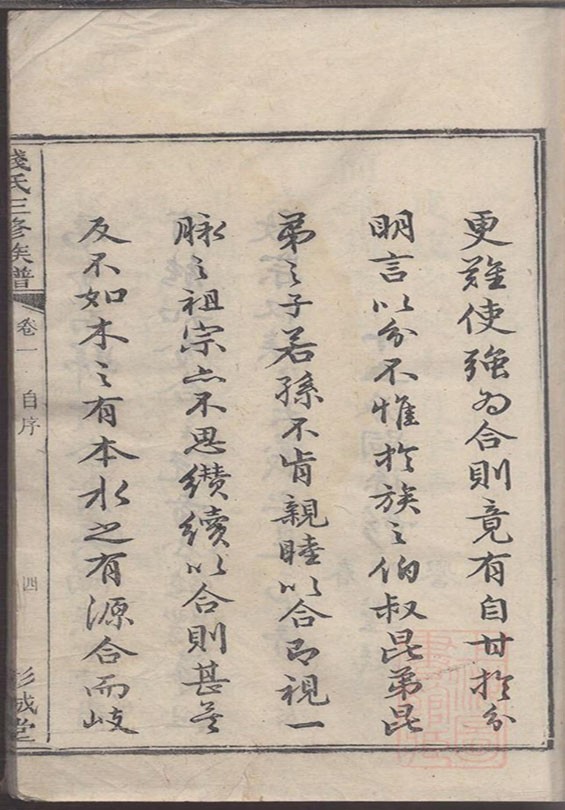 更難使強為合則竟有自甘於分
明言以分不惟於族之伯叔昆弟昆
弟之子若孫不肯親睦以合即視一
脉之祖宗亦不思纘續以合則甚至
反不如木之有本水之有源合而岐
錢氏三修族譜
卷一
自序
四
彭城堂